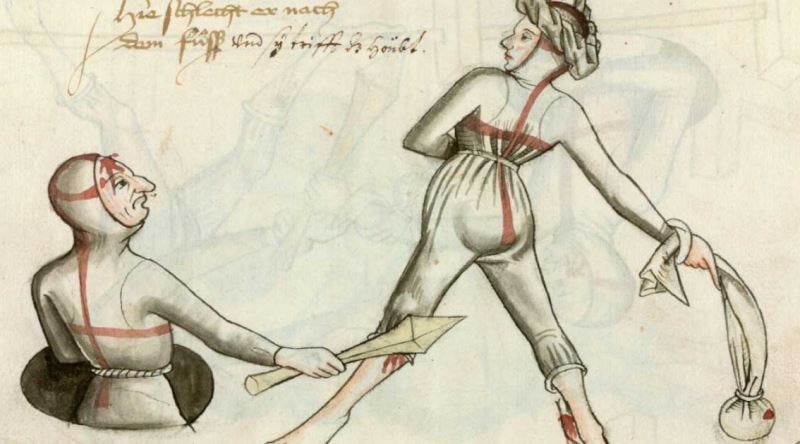 hie schlecht er nach
dem füsß und sÿ trifft dz höubt.